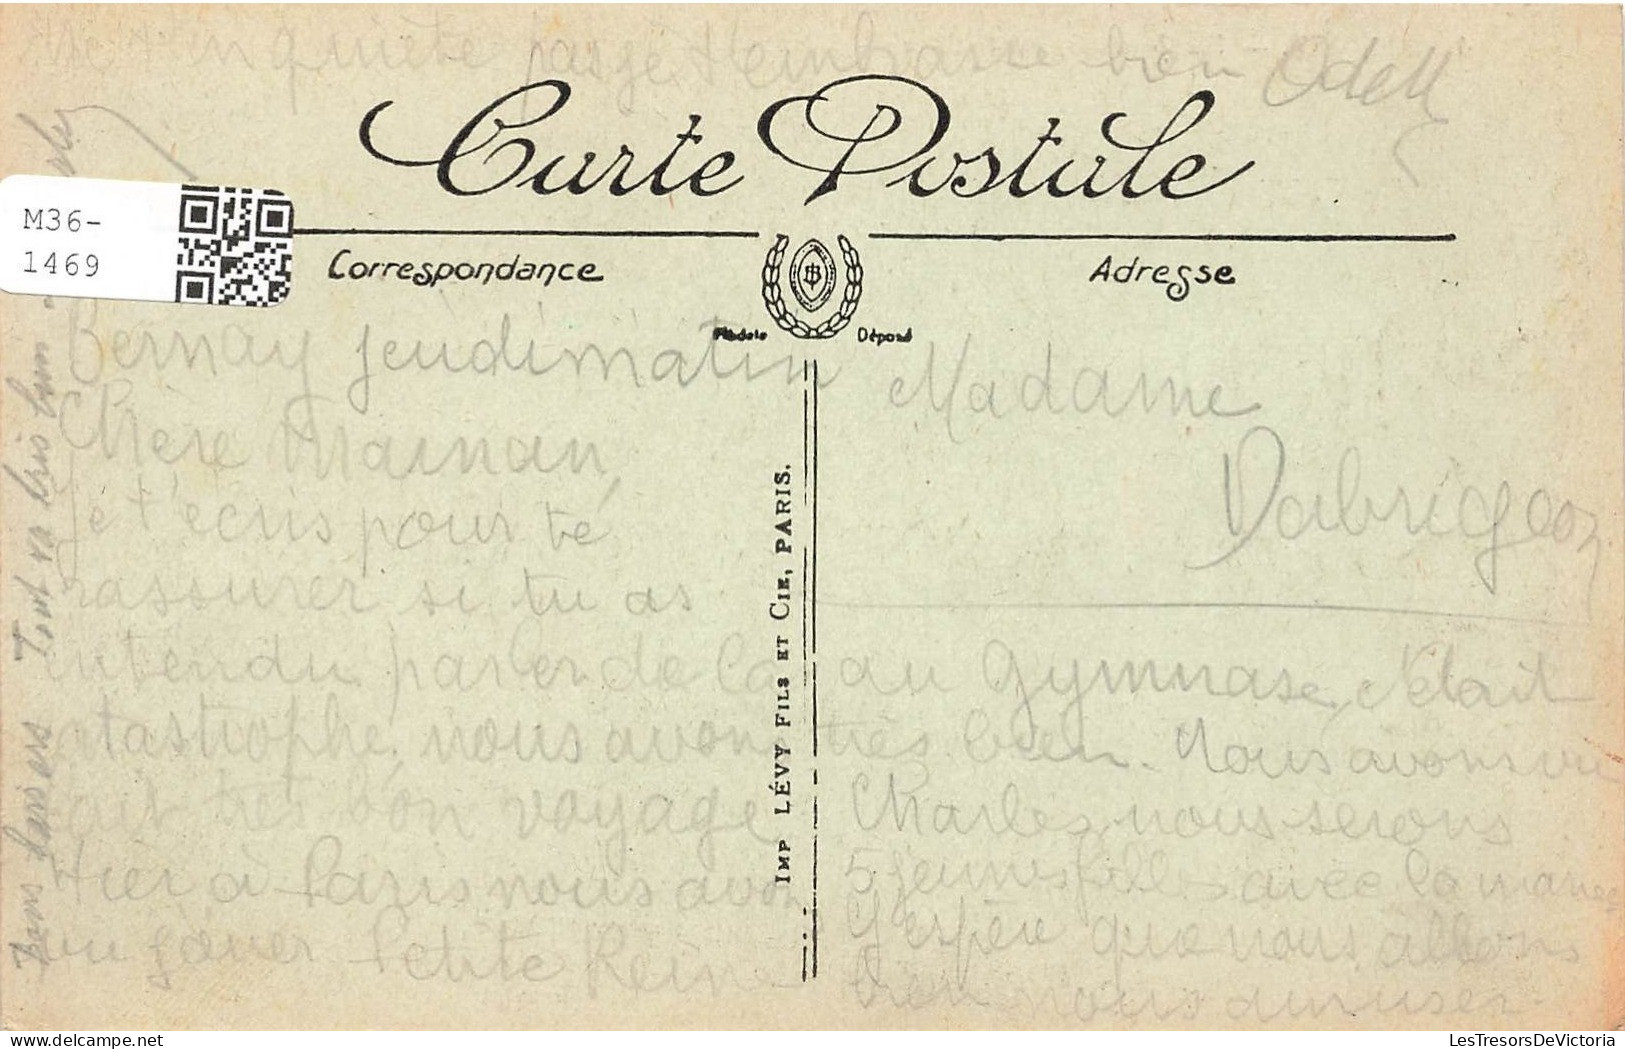 ne t'inquiète pas je t'embrasse bien Odett
Carte Postale
M36-
1469
Correspondance
Adresse
Modèle Déposé
Bernay jeudi matin
Chère Maman,
je t'écris pour té
rassurer si tu as
entendu parler de la
catastrophe, nous avons
fait très bon voyage
Hier à Paris nous avons
vu jouer Petite Reine
Madame
Dabrigeon
au Gymnase, c'était
très bien. Nous avons vu
Charles, nous serons
5 jeunes filles avec la mariée
J'espère que nous allons
bien nous amuser.
Bons baisers Tout va très bien
IMP LÉVY FILS ET CIE, PARIS.
LesTresorsDeVictoria
delcampe.net